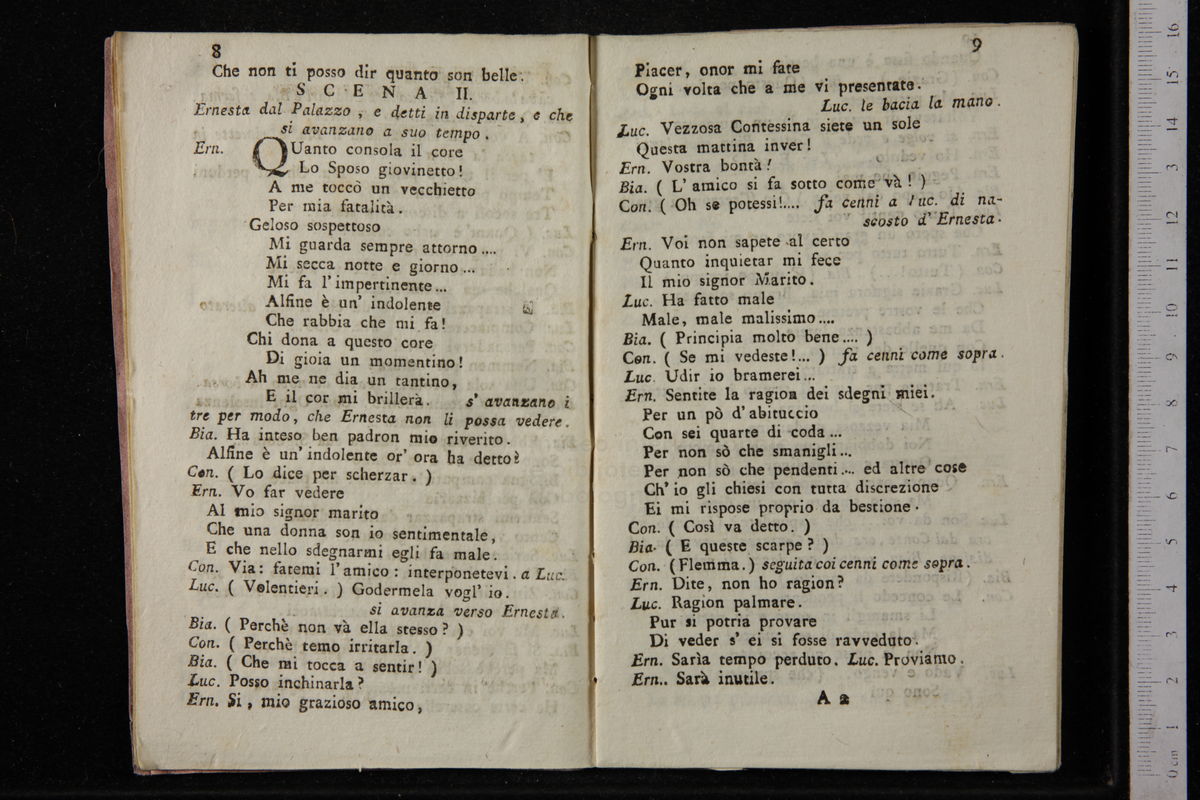 8
Che non ti posso dir quanto son belle.
SCENA II.
Ernesta dal Palazzo, e detti in disparte, e che
si avanzano a suo tempo.
Ern. QUanto consola il core
Lo Sposo giovinetto!
A me toccò un vecchietto
Per mia fatalità.
Geloso sospettoso
Mi guarda sempre attorno....
Mi secca notte e giorno...
Mi fa l'impertinente...
Alfine è un' indolente
Che rabbia che mi fa!
Chi dona a questo core
Di gioia un momentino!
Ah me ne dia un tantino,
E il cor mi brillerà. s' avanzano i
tre per modo, che Ernesta non li possa vedere.
Bia. Ha inteso ben padron mio riverito.
Alfine è un' indolente or' ora ha detto?
Con. ( Lo dice per scherzar. )
Ern. Vo far vedere
Al mio signor marito
Che una donna son io sentimentale,
E che nello sdegnarmi egli fa male.
Con. Via: fatemi l'amico: interponetevi. a Luc.
Luc. ( Volentieri. ) Godermela vogl' io.
si avanza verso Ernesta.
Bia. ( Perchè non và ella stesso? )
Con. ( Perchè temo irritarla. )
Bia. ( Che mi tocca a sentir! )
Luc. Posso inchinarla?
Ern. Si, mio grazioso amico,
9
Piacer, onor mi fate
Ogni volta che a me vi presentate.
Luc. le bacia la mano.
Luc. Vezzosa Contessina siete un sole
Questa mattina inver!
Ern. Vostra bontà!
Bia. ( L' amico si fa sotto come và! )
Con. ( Oh se potessi!.... fa cenni a Luc. di na-
scosto d' Ernesta.
Ern. Voi non sapete al certo
Quanto inquietar mi fece
Il mio signor Marito.
Luc. Ha fatto male
Male, male malissimo....
Bia. ( Principia molto bene.... )
Con. ( Se mi vedeste!... ) fa cenni come sopra.
Luc. Udir io bramerei...
Ern. Sentite la ragion dei sdegni miei.
Per un pò d' abituccio
Con sei quarte di coda...
Per non sò che smanigli...
Per non sò che pendenti.... ed altre cose
Ch' io gli chiesi con tutta discrezione
Ei mi rispose proprio da bestione.
Con. ( Così va detto. )
Bia. ( E queste scarpe? )
Con. ( Flemma. ) seguita coi cenni come sopra.
Ern. Dite, non ho ragion?
Luc. Ragion palmare.
Pur si potria provare
Di veder s' ei si fosse ravveduto.
Ern. Sarìa tempo perduto. Luc. Proviamo.
Ern.. Sarà inutile.
A 2